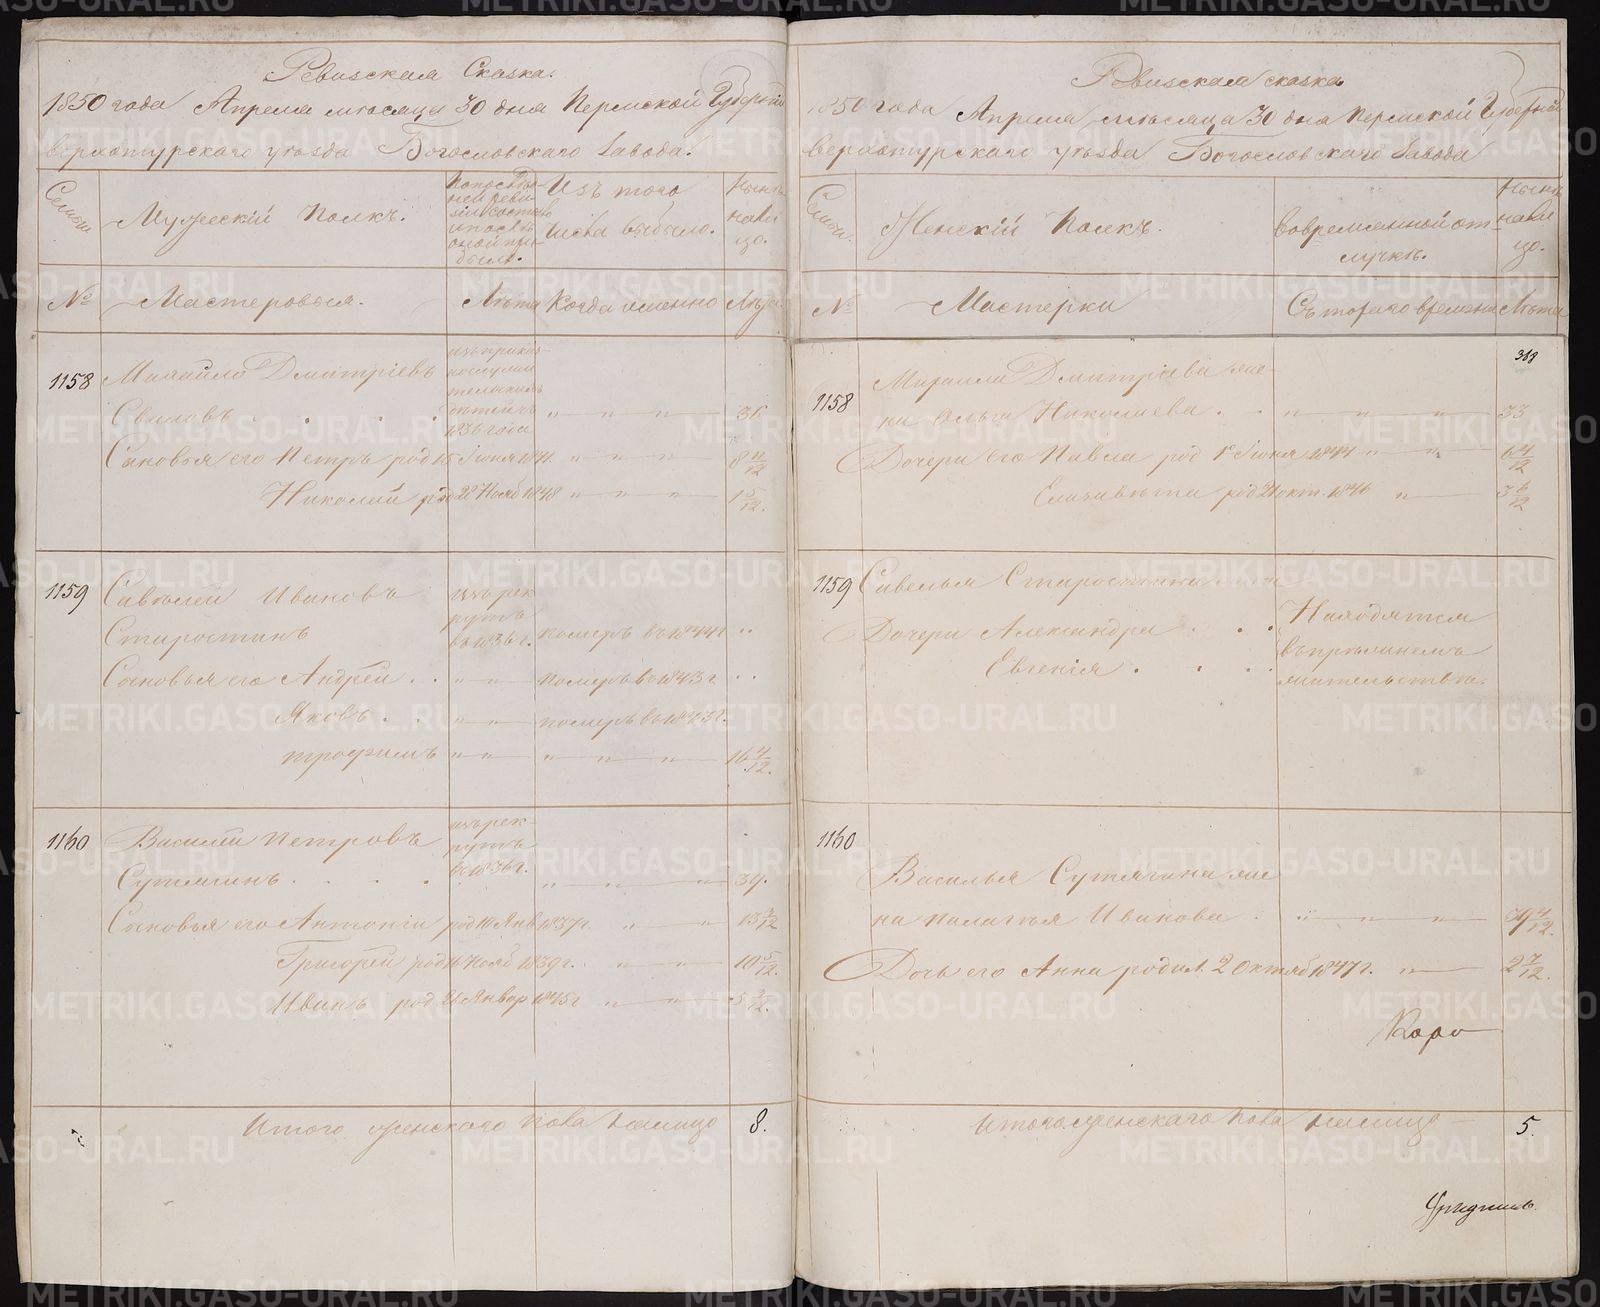 Ревизская Сказка.
1850 года Апреля месяца 30 дня Пермской Губерніи
Верхотурскаго уѣзда Богословскаго Завода.
Семьи
Мужескій Полкъ.
Изъ того
числа выбыло.
Нынѣ
на ли
цо.
№
Мастеровыя.
Лѣта
Когда именно
Лѣта
1158
Михайло Дмитріевъ
1836 года
36
Сыновья его Петръ род 15 Іюня 1841.
8 11/12
Николай род 28 Нояб 1848
1 5/12.
1159
Савѣлей Ивановъ
изъ рек
рутъ
въ 1836 г.
Старостинъ
померъ въ 1844 г
Сыновья его Андрей
померъ въ 1843 г
Яковъ
померъ въ 1843 г.
Трофимъ
16 4/12.
1160
Василій Петровъ
изъ рек
рутъ
въ 1836 г.
Сутягинъ
39.
Сыновья его Антоній род 10 Янв 1837 г.
13 3/12
Григорей род 16 Нояб 1839 г.
10 5/12.
Иванъ род. 21 Январ 1845 г
5 3/12.
Итого женскаго пола налицо
8.
Ревизская сказка
1850 года Апреля месяца 30 дня Пермской Губерніи
Верхотурскаго уѣзда Богословскаго Завода
Семьи.
Женскій Полкъ.
Во временной от-
лучкѣ.
Нынѣ
на ли
цо.
№
Мастерки
Съ котораго времени
Лѣта
1158
Михаила Дмитріева же-
на Ольга Николаева
33
Дочери его Павла род 1 Іюня 1844
6 4/12
Елизавѣта род 21 окт. 1846
3 6/12
1159
Савелья Старостина
Дочери Александра
Евгенія
Находятся
жительствѣ.
1160
Василья Сутягина же
на Палагѣя Иванова
39 4/12.
Дочь его Анна родил. 2 Октяб 1847 г.
2 7/12.
Итого женскаго пола налицо
5.